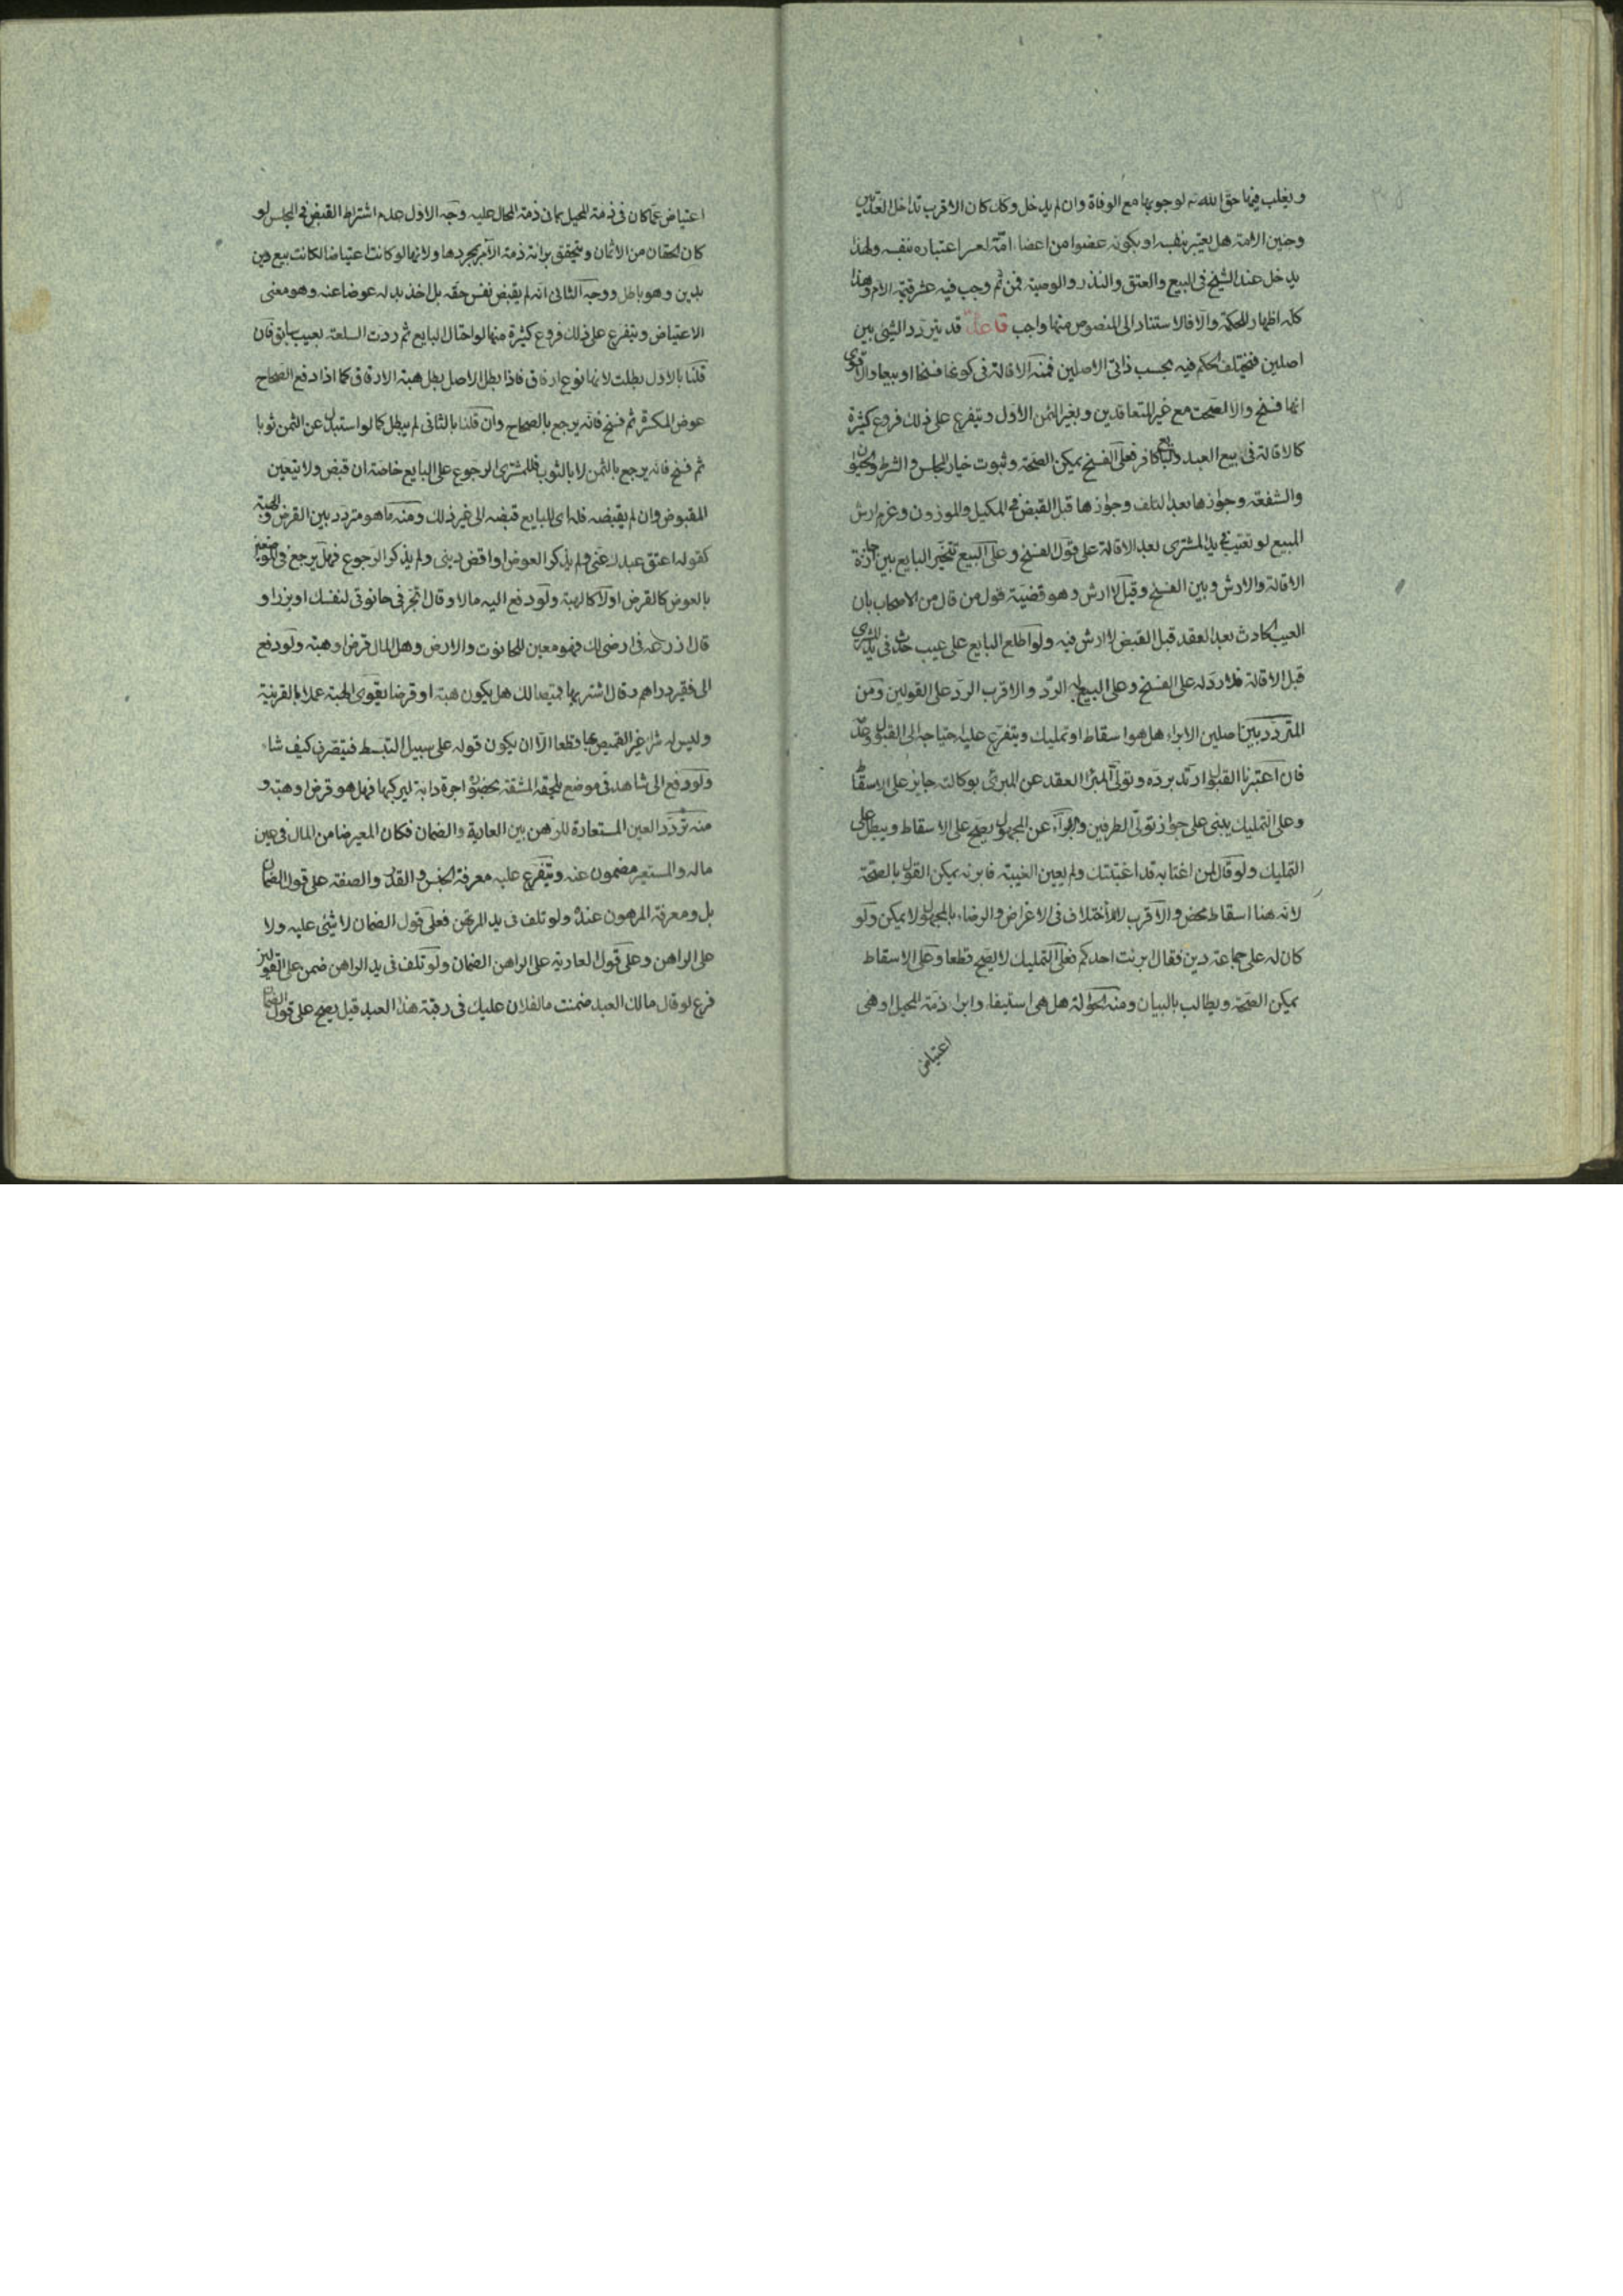 ويغلب فيها حق الله تع لوجوبها مع الوفاة وان لم يدخل وكك كان الاقرب تداخل العدتين
وجنين الامة هل يعتبر بنفسه او بكونه عضوا من اعضاء امه لعسر اعتباره بنفسه ولهذا
يدخل عند الشيخ فى البيع والعتق والنذر والوصية فمن ثم وجب فيه عشر قيمة الام وهذا
كله اظهار للحكمة والا فالاستناد الى المنصوص منها واجب قاعدة قد يتردد الشيئ بين
اصلين فيختلف الحكم فيه بحسب ذاتى الاصلين فمنه الاقالة فى كونها فسخا او بيعا والاقوى
انها فسخ والا لصحت مع غير المتعاقدين وبغير الثمن الاول ويتفرع على ذلك فروع كثيرة
كالاقالة فى بيع العبد والبايع كافر فعلى الفسخ يمكن الصحة وثبوت خيار المجلس والشرط والحيوان
والشفعة وجوازها بعد التلف وجوازها قبل القبض فى المكيل والموزون وغرم ارش
المبيع لو تعيب فى يد المشترى بعد الاقالة على قول الفسخ وعلى البيع تتخير البايع بين اجازة
الاقالة والارش وبين الفسخ وقيل لا ارش وهو قضية قول من قال من الاصحاب بان
العيب الحادث بعد العقد قبل القبض لا ارش فيه ولو اطلع البايع على عيب حدث فى يد المشترى
قبل الاقالة فلا رد له على الفسخ وعلى البيع له الرد والاقرب الرد على القولين ومن
المتردد بين اصلين الابراء هل هو اسقاط او تمليك ويتفرع عليه احتياجه الى القبول وعدمه
فان اعتبرنا القبول ارتد برده وتولى المبرأ العقد عن المبرئ بوكالته جايز على الاسقاط
وعلى التمليك يبنى على جواز تولى الطرفين والبراءة عن المجهول يصح على الاسقاط ويبطل على
التمليك ولو قال لمن اغتابه قد اغتبتك ولم يعين الغيبة فابرئه يمكن القول بالصحة
لانه هنا اسقاط محض والاقرب لا لاختلاف فى الاغراض والرضاء بالمجهول لا يمكن ولو
كان له على جماعة دين فقال برئت احدكم فعلى التمليك لا يصح قطعا وعلى الاسقاط
يمكن الصحة ويطالب بالبيان ومنه الحوالة هل هى استيفاء وابراء ذمة المحيل او هى
اعتياض
اعتياض عما كان فى ذمة المحيل بما فى ذمة المحال عليه وجه الاول عدم اشتراط القبض فى المجلس لو
كان الحقان من الاثمان ويتحقق براءة ذمة الآمر بمجردها ولانها لو كانت اعتياضا لكانت بيع دين
بدين وهو باطل ووجه الثانى انه لم يقبض نفس حقه بل اخذ بدله عوضا عنه وهو معنى
الاعتياض ويتفرع على ذلك فروع كثيرة منها لو احتال البايع ثم ردت السلعة بعيب سابق فان
قلنا بالاول بطلت لانها نوع ارفاق فاذا بطل الاصل بطل هيئة الارفاق كما اذا دفع الصحاح
عوض المكسرة ثم فسخ فانه يرجع بالصحاح وان قلنا بالثانى لم يبطل كما لو استبدل عن الثمن ثوبا
ثم فسخ فانه يرجع بالثمن لا بالثوب فللمشترى الرجوع على البايع خاصة ان قبض ولا يتعين
المقبوض وان لم يقبضه فله اى للبايع قبضه الى غير ذلك ومنه ما هو متردد بين القرض والهبة
كقوله اعتق عبدك عنى ولم يذكر العوض او اقض دينى ولم يذكر الرجوع فهل يرجع فى
بالعوض كالقرض اولا كالهبة ولو دفع اليه مالا وقال اتجر فى حانوتى لنفسك او بذرا و
قال ازرعه فى ارضى لك فهو معين للحانوت والارض وهل المال قرض او هبة ولو دفع
الى فقير دراهم وقال اشتر بها قميصا لك هل يكون هبة او قرضا يقوى الهبة عملا بالقرينة
وليس له شراء غير القميص بها قطعا الا ان يكون قوله على سبيل التبسط فيتصرف كيف شاء
ولو دفع الى شاهد فى موضع يلحقه المشقة بحضوره اجرة دابة ليركبها فهل هو قرض او هبة و
منه تردد العين المستعارة للرهن بين العارية والضمان فكان المعير ضامن المال فى عين
ماله والمستعير مضمون عنه ويتفرع عليه معرفة الجنس والقدر والصفة على قول الضمان
بل ومعرفة المرهون عنده ولو تلف فى يد المرتهن فعلى قول الضمان لا شيئ عليه ولا
على الراهن وعلى قول العارية على الراهن الضمان ولو تلف فى يد الراهن ضمن على القولين
فرع لو قال مالك العبد ضمنت ما لفلان عليك فى رقبة هذا العبد قيل يصح على قول الضمان